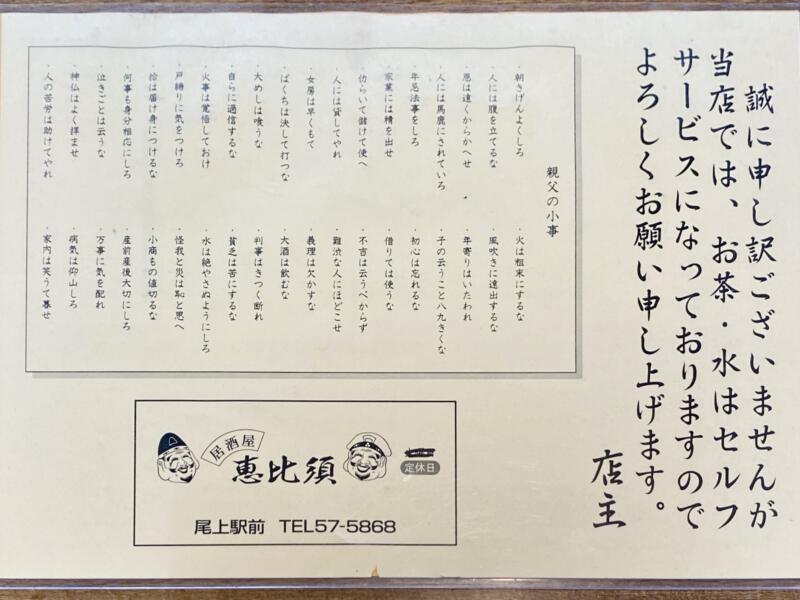 誠に申し訳ございませんが
当店では、お茶・水はセルフ
サービスになっておりますので
よろしくお願い申し上げます。
店主
親父の小事
・朝きげんよくしろ
・火は粗末にするな
・人には腹を立てるな
・風吹きに遠出するな
・恩は遠くからかへせ
・年寄りはいたわれ
・人には馬鹿にされていろ
・子の云うこと八九きくな
・年忌法事をしろ
・初心は忘れるな
・家業には精を出せ
・借りては使うな
・働いて儲けて使へ
・不吉は云うべからず
・人には貸してやれ
・難渋な人にほどこせ
・女房は早くもて
・義理は欠かすな
・ばくちは決して打つな
・大酒は飲むな
・大めしは喰うな
・判事はきつく断れ
・自らに過信するな
・貧乏は苦にするな
・火事は覚悟しておけ
・水は絶やさぬようにしろ
・戸締りに気をつけろ
・怪我と災は恥と思へ
・拾は届け身につけるな
・小商もの値切るな
・何事も身分相応にしろ
・産前産後大切にしろ
・泣きごとは云うな
・万事に気を配れ
・神仏はよく拝ませ
・病気は仰山しろ
・人の苦労は助けてやれ
・家内は笑うて暮せ
居酒屋
恵比須
定休日
尾上駅前 TEL57-5868